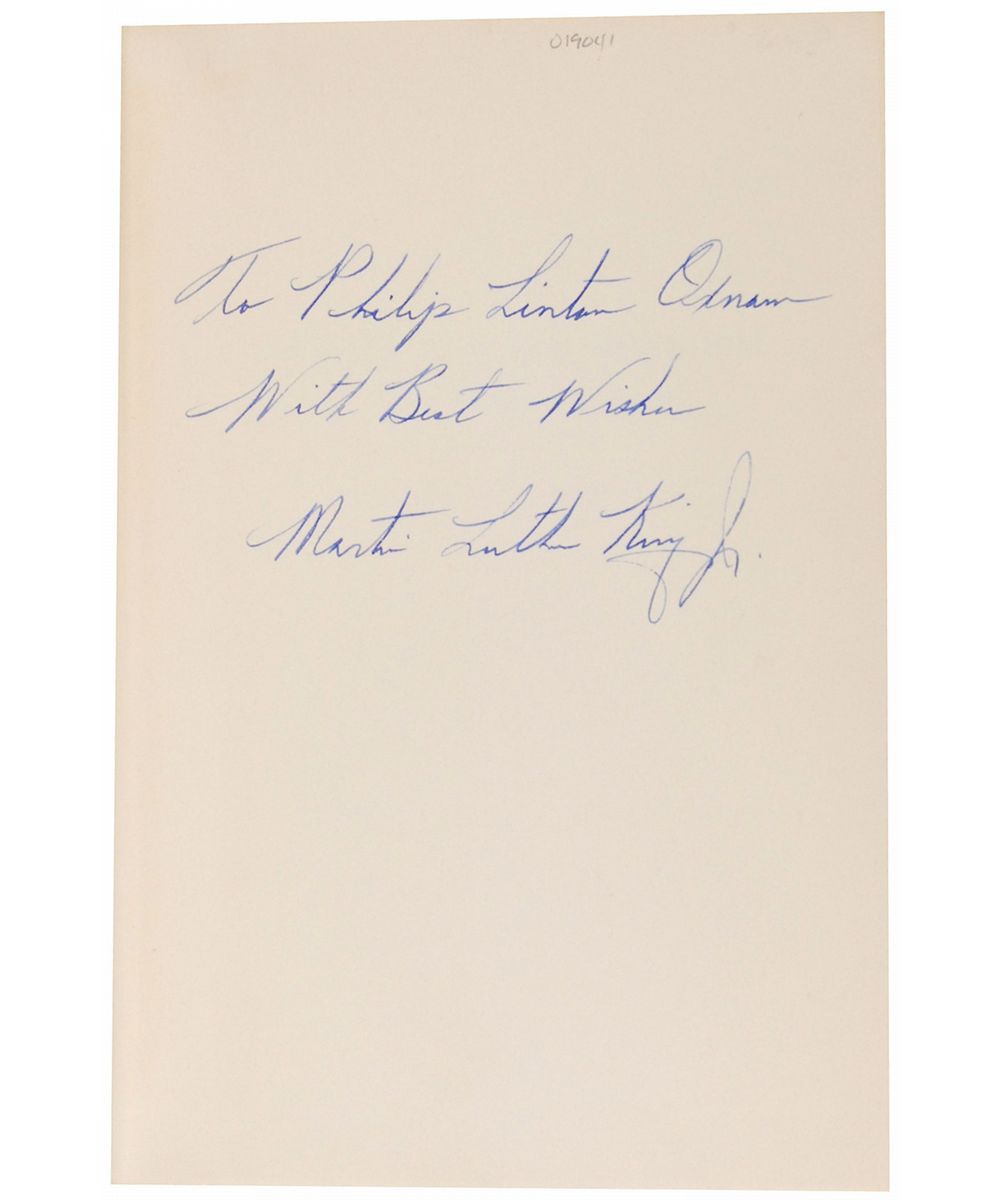 019041
To Philip Linton Oxnam
With Best Wishes
Martin Luther King Jr.